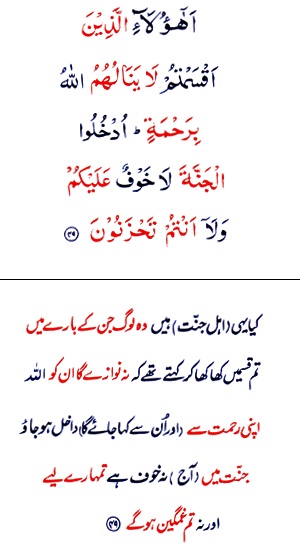 اَهٰٓؤُلَآءِ الَّذِيْنَ
اَقْسَمْتُمْ لَا يَنَالُهُمُ اللّٰهُ
بِرَحْمَةٍ ؕ اُدْخُلُوا
الْجَنَّةَ لَا خَوْفٌ عَلَيْكُمْ
وَلَاۤ اَنْتُمْ تَحْزَنُوْنَ ﴿۴۹﴾
کیا یہی (اہل جنّت) ہیں وہ لوگ جن کے بارے میں
تم قسمیں کھا کھا کر کہتے تھے کہ نہ نوازے گا ان کو اللہ
اپنی رحمت سے (اور اُن سے کہا جائے گا) داخل ہو جاؤ
جنّت میں (آج) نہ خوف ہے تمہارے لیے
اور نہ تم غمگین ہو گے ﴿۴۹﴾